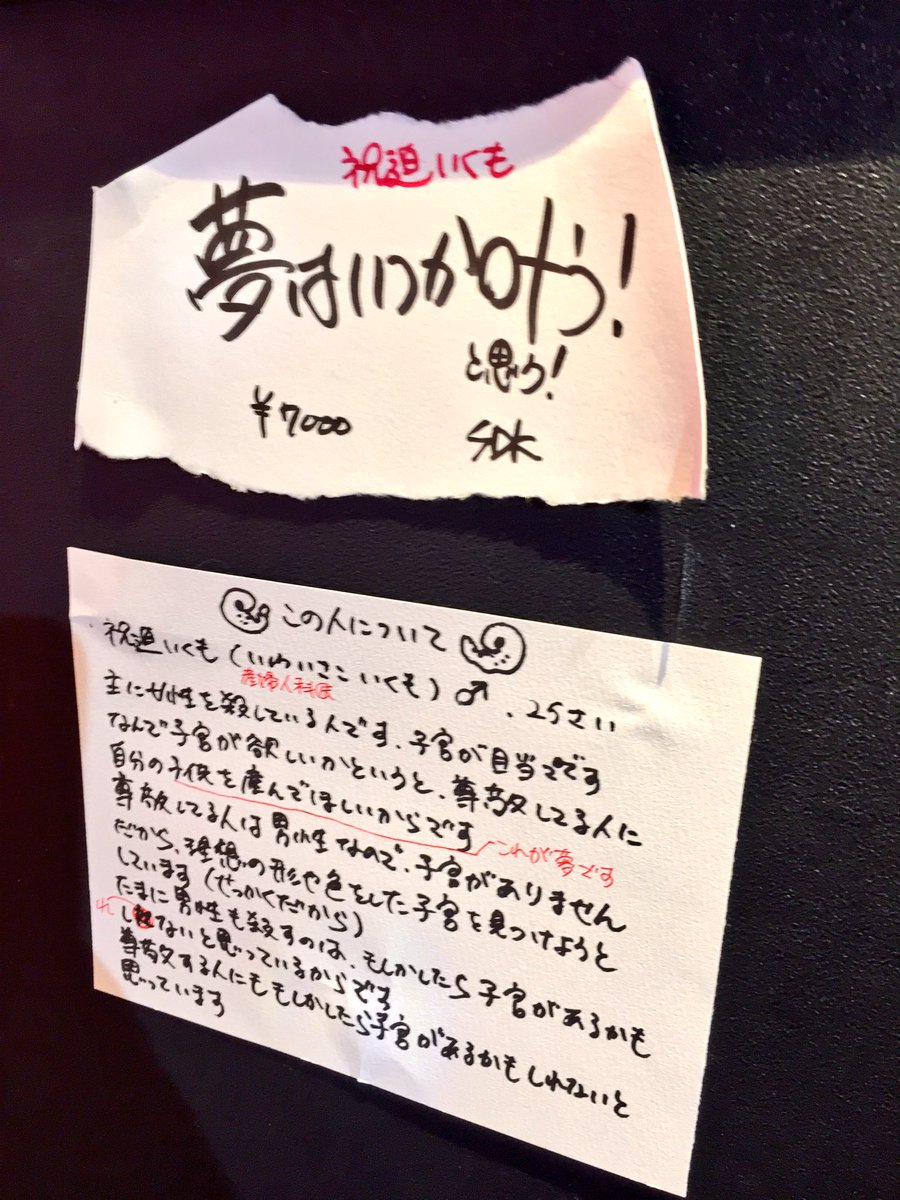 祝迫いくも
夢はいつか叶う!
と思う!
¥7000
SDK
この人について
祝迫いくも(いわいさこ いくも)♂、25さい
産婦人科医
主に女性を殺している人です、子宮が目当てです
なんで子宮が欲しいかというと、尊敬してる人に
自分の子供を産んでほしいからです
これが夢です
尊敬してる人は男性なので、子宮がありません
だから、理想の形や色をした子宮を見つけようと
しています(せっかくだから)
たまに男性も殺すのは、もしかしたら子宮があるかも
れ
しないと思っているからです
尊敬する人にももしかしたら子宮があるかもしれないと
思っています